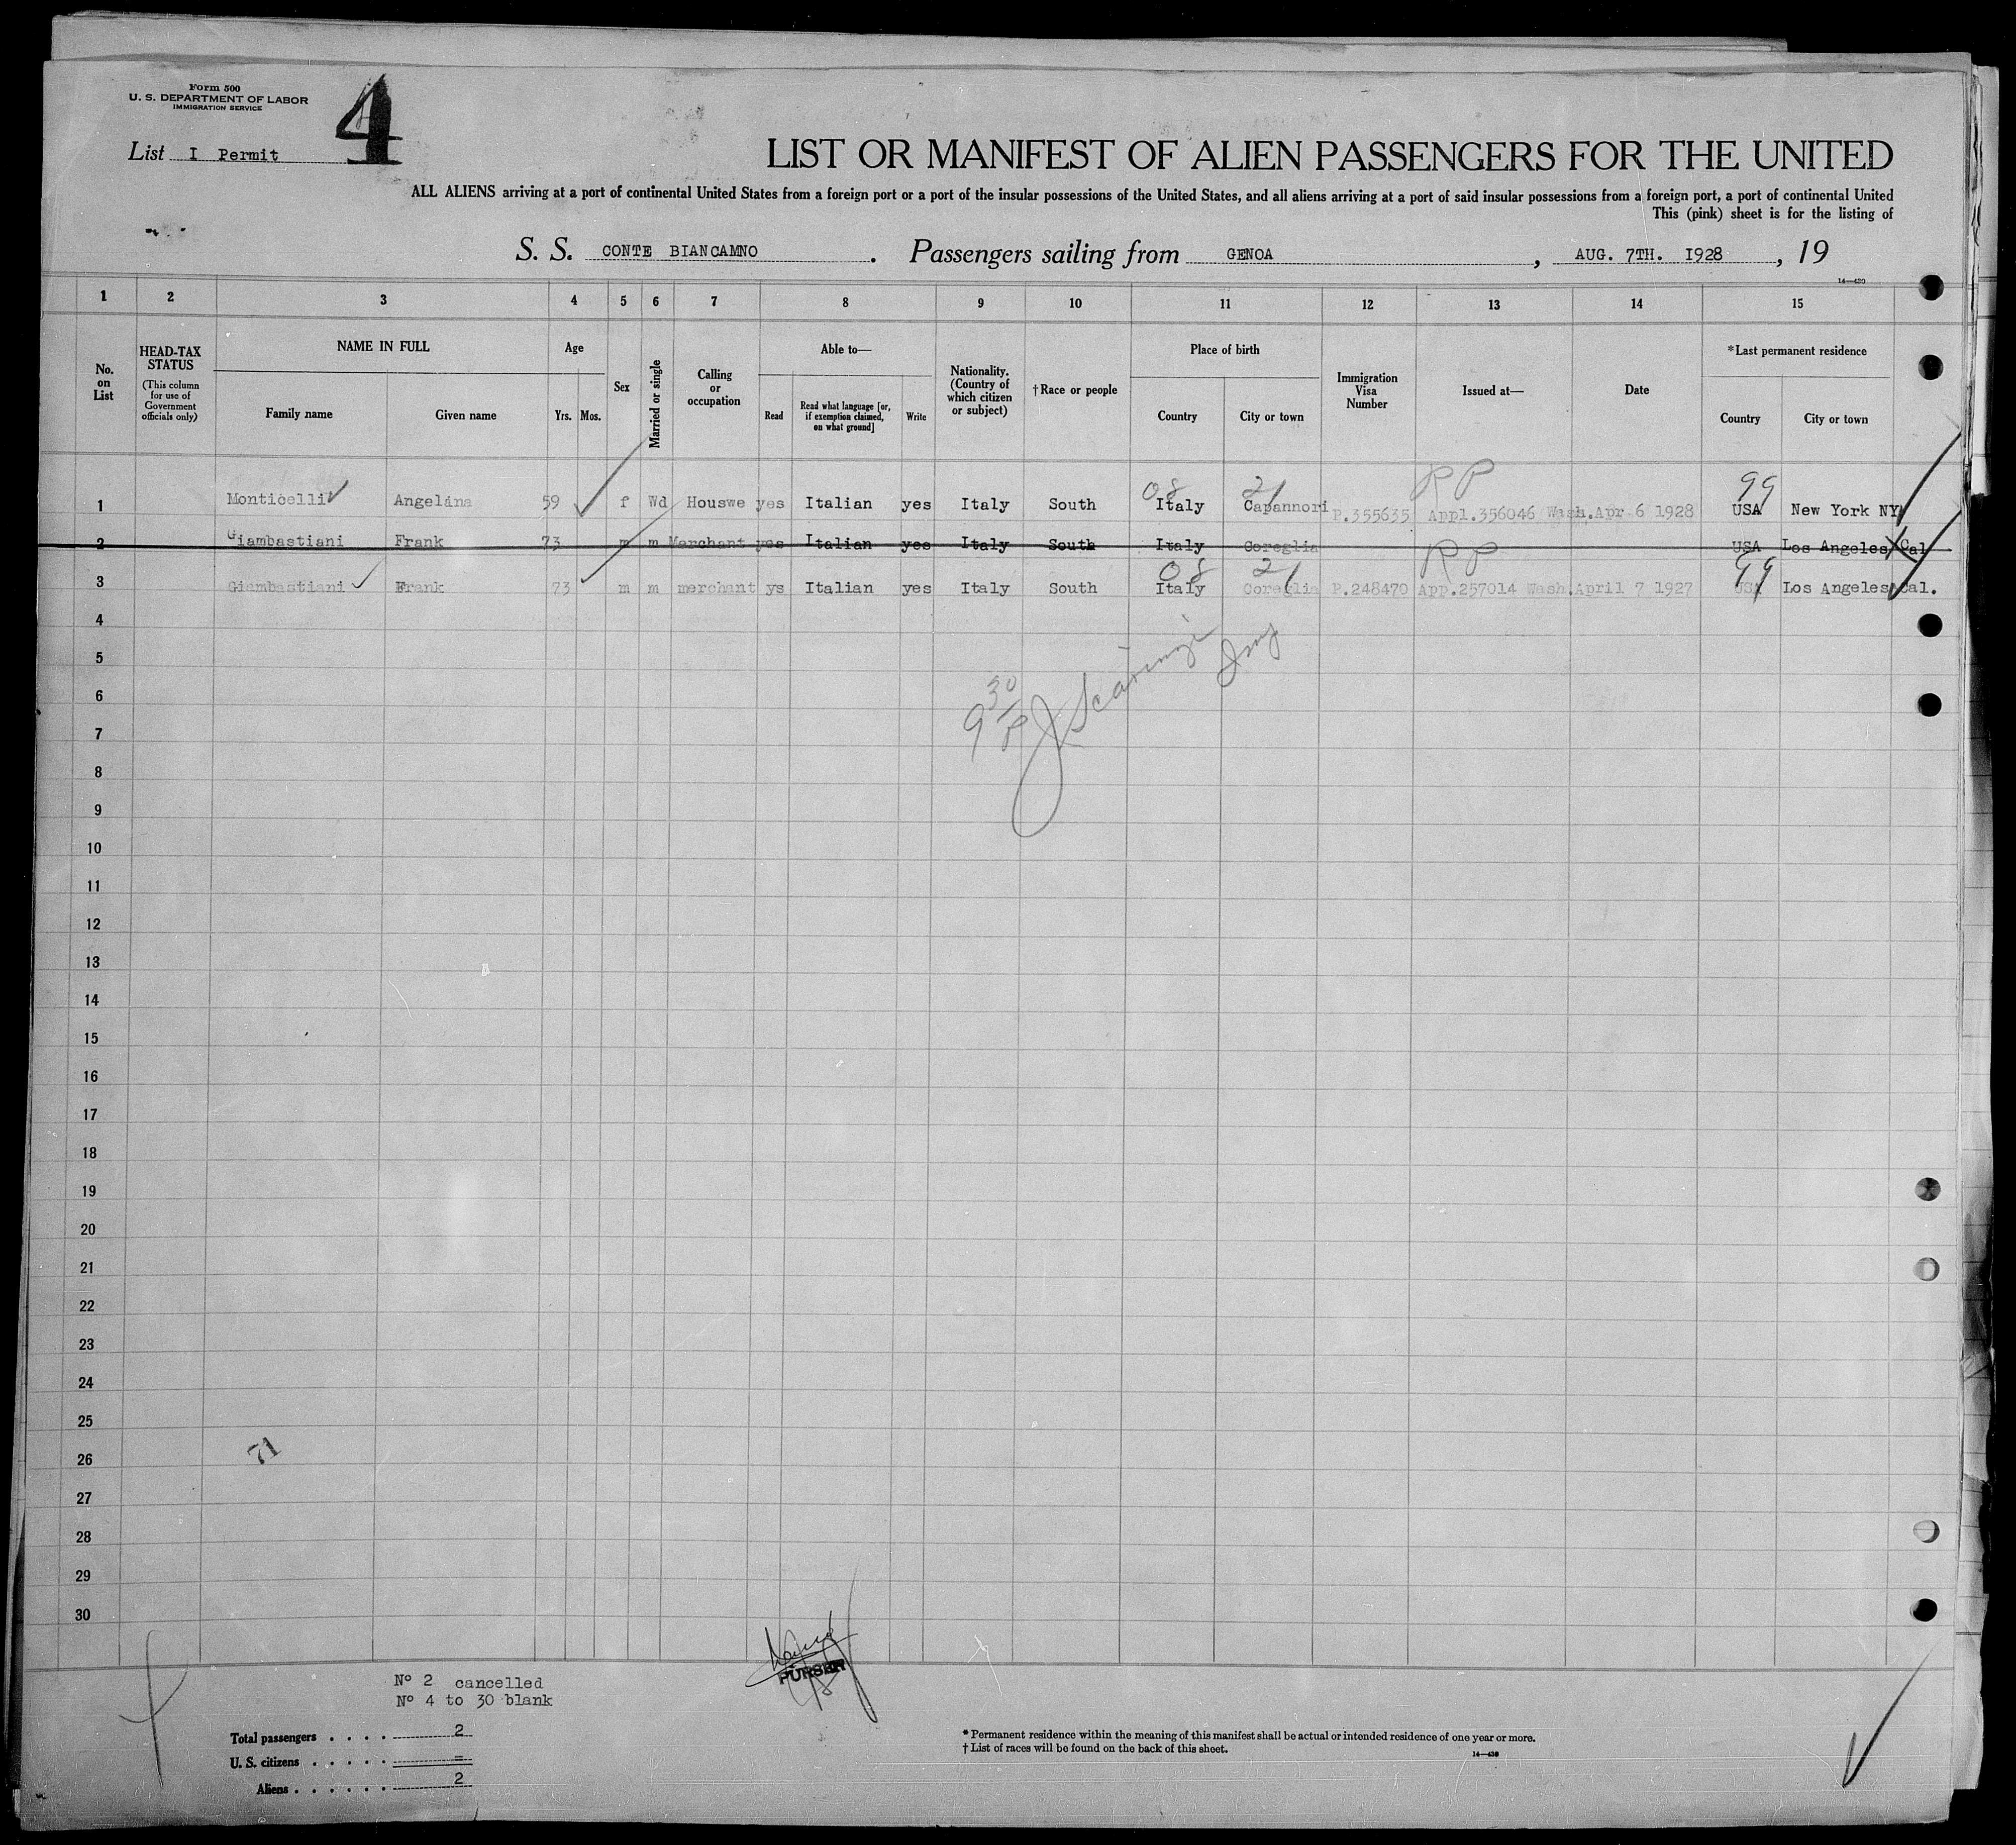 Form 500
U. S. DEPARTMENT OF LABOR
IMMIGRATION SERVICE
4
List I Permit
LIST OR MANIFEST OF ALIEN PASSENGERS FOR THE UNITED
ALL ALIENS arriving at a port of continental United States from a foreign port or a port of the insular possessions of the United States, and all aliens arriving at a port of said insular possessions from a foreign port, a port of continental United
This (pink) sheet is for the listing of
S. S. CONTE BIANCAMNO . Passengers sailing from GENOA , AUG. 7TH. 1928 , 19
14—430
1 2 3 4 5 6 7 8 9 10 11 12 13 14 15
No. on List
HEAD-TAX STATUS
(This column for use of Government officials only)
NAME IN FULL
Family name
Given name
Age
Yrs. Mos.
Sex
Married or single
Calling or occupation
Able to—
Read
Read what language [or, if exemption claimed, on what ground]
Write
Nationality. (Country of which citizen or subject)
†Race or people
Place of birth
Country
City or town
Immigration Visa Number
Issued at—
Date
*Last permanent residence
Country
City or town
08 21 RP 99
1 Monticelli Angelina 59 f Wd Houswe yes Italian yes Italy South Italy Capannori P.355635 Appl.356046 Wash.Apr 6 1928 USA New York NY
2 Giambastiani Frank 73 m m Merchant yes Italian yes Italy South Italy Coreglia USA Los Angeles Cal
08 21 RP 99
3 Giambastiani Frank 73 m m merchant ys Italian yes Italy South Italy Coreglia P.248470 App.257014 Wash.April 7 1927 USA Los Angeles Cal.
4
5
6
9 30
7
8
9
10
11
12
13
14
15
16
17
18
19
20
21
22
23
24
25
71
26
27
28
29
30
PURSER
Nº 2 cancelled
Nº 4 to 30 blank
Total passengers . . . . 2
U. S. citizens . . . . . –
Aliens . . . . . . 2
* Permanent residence within the meaning of this manifest shall be actual or intended residence of one year or more.
† List of races will be found on the back of this sheet.
14—430